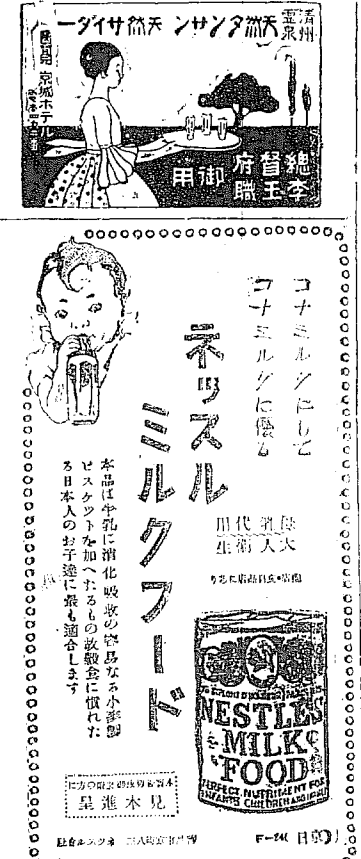 清州
霊泉
天然タンサン 天然サイダー
京城ホテル
總督府
李王職
御用
コナミルクにして
コナミルクに優る
ネッスル
ミルクフード
母乳代用
大人衛生
本品は牛乳に消化吸收の容易なる小麥製
ビスケットを加へたるもの故穀食に慣れた
る日本人のお子達に最も適合します
見本進呈
NESTLÉ'S
MILK
FOOD
PERFECT NUTRIMENT FOR
INFANTS CHILDREN AND INVALIDS
F-24